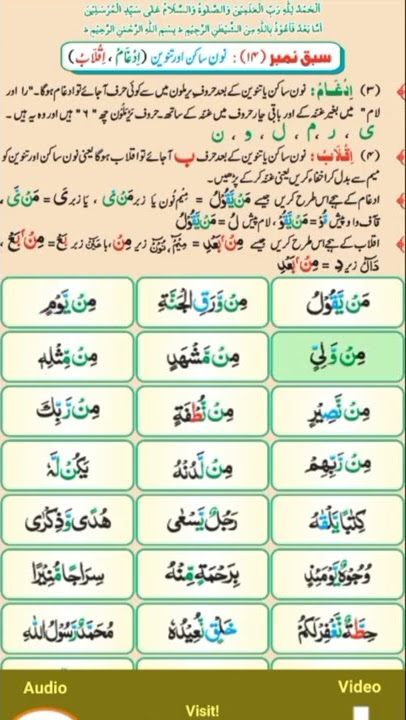 اَلْحَمْدُ لِلّٰهِ رَبِّ الْعٰلَمِيْنَ وَالصَّلٰوةُ وَالسَّلَامُ عَلٰى سَيِّدِ الْمُرْسَلِيْنَ
اَمَّا بَعْدُ فَاَعُوْذُ بِاللّٰهِ مِنَ الشَّيْطٰنِ الرَّجِيْمِ ط بِسْمِ اللّٰهِ الرَّحْمٰنِ الرَّحِيْمِ ط
سبق نمبر (۱۴) : نون ساکن اور تنوین (اِدْغَام ، اِقْلَاب)
(۳) اِدْغَام : نون ساکن یا تنوین کے بعد حروف یرملون میں سے کوئی حرف آجائے تو ادغام ہوگا۔ "را اور
لام" میں بغیر غنہ کے اور باقی چار حروف میں غنہ کے ساتھ۔ حروف یَرْمَلُوْن چھ "۶" ہیں اور وہ یہ ہیں۔
ی ، ر ، م ، ل ، و ، ن
(۴) اِقْلَاب : نون ساکن یا تنوین کے بعد حرف ب آجائے تو اقلاب ہوگا یعنی نون ساکن اور تنوین کو
میم سے بدل کر اخفاء کریں یعنی غنہ کر کے پڑھیں۔
ادغام کے ہجے اس طرح کریں جیسے مَنْ یَّقُوْلُ = میم نون یا زبر مَنْ یَّ ، یا زبر یَ = مَنْ یَّ ،
قاف واو پیش قُوْ = مَنْ یَّقُوْ ، لام پیش لُ = مَنْ یَّقُوْلُ
اقلاب کے ہجے اس طرح کریں جیسے مِنْۢ بَعْدِ = میم نون زیر مِنْۢ ، با عین زبر بَعْ = مِنْۢ بَعْ ،
دال زیر دِ = مِنْۢ بَعْدِ
مَنْ يَّقُوْلُ مِنْ وَّرَقِ الْجَنَّةِ مِنْ يَّوْمٍ
مِنْ وَّلِيٍّ مِنْ مَّشْهَدِ مِنْ مِّثْلِهٖ
مِنْ نَّصِيْرٍ مِنْ نُّطْفَةٍ مِنْ رَّبِّكَ
مِنْ رَّبِّهِمْ مِنْ لَّدُنْهُ يَكُنْ لَّهٗ
كِتٰبًا يَّلْقٰىهُ رَجُلٌ يَّسْعٰى هُدًى وَّذِكْرٰى
وُجُوْهٌ يَّوْمَئِذٍ بِرَحْمَةٍ مِّنْهُ سِرَاجًا مُّنِيْرًا
حِطَّةٌ نَّغْفِرْلَكُمْ خَلْقٍ نُّعِيْدُهٗ مُحَمَّدٌ رَّسُوْلُ اللّٰهِ
Audio Video
Visit!